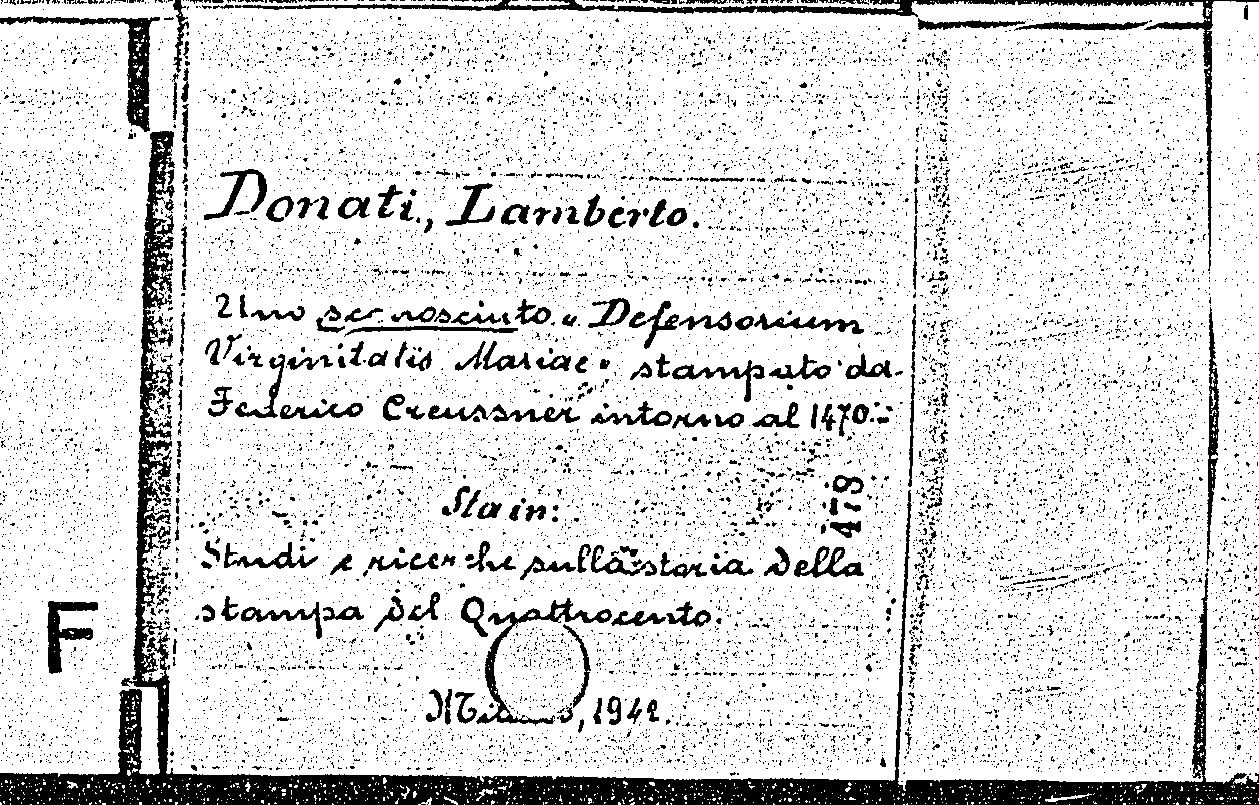 Donati, Lamberto.
Uno sconosciuto "Defensorium
Virginitatis Mariae" stampato da
Federico Creussner intorno al 1470.-
478
Sta in:
Studi e ricerche sulla storia della
stampa del Quattrocento.
F
Milano, 1942.